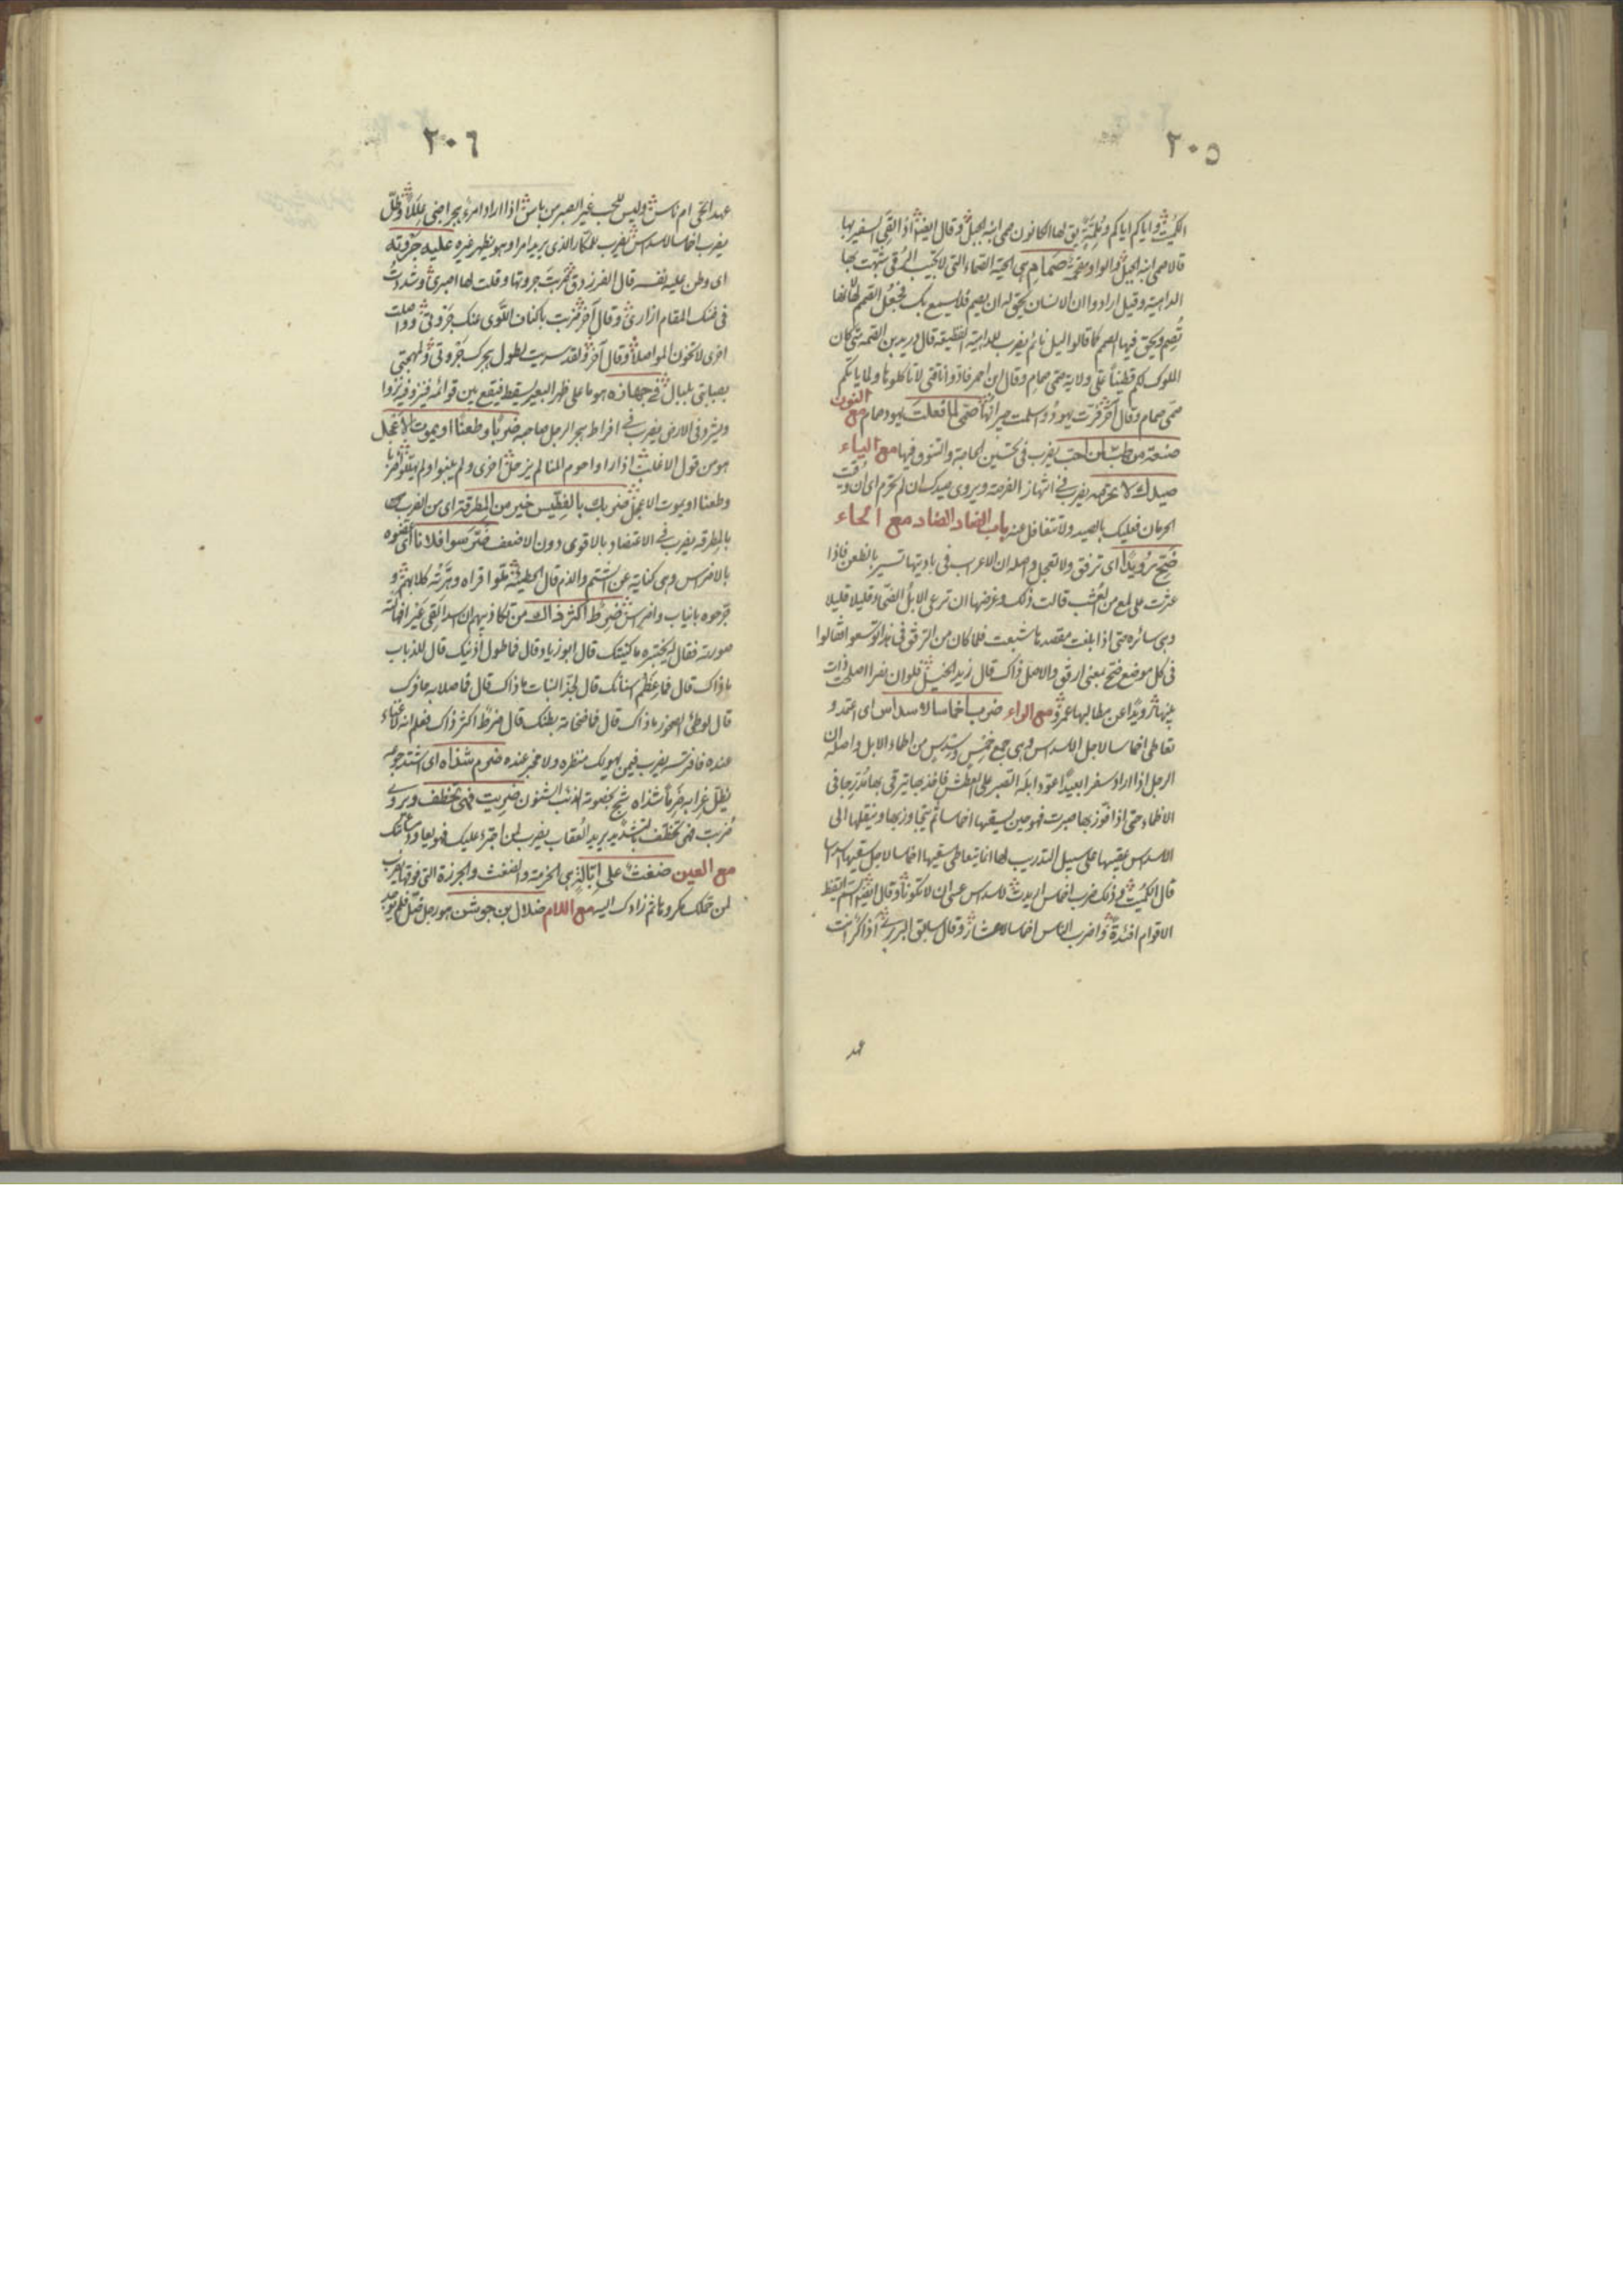 ٢٠٥
الكميت واياكم اياكم وملمة يق لها الكانون صمى ابنة الجبل وقال ايضا اذا لقى السفير بها
قالا صمى ابنة الجبل قالوا وبقمة صمام هى الحية الصماء التى لا تجيب الرقى شبهت بها
الداهية وقيل ارادوا ان الانسان يحق له ان يصم فلا يسمع بك فجعل الصمم لها لانها
تصم ويحق فيها الصمم كما قالوا ليل نائم يضرب للداهية الفظيعة قال دريد بن الصمة متى كان
الملوك لكم قطينا على ولاية صمى صمام وقال ابن احمر فادوا ناقتى لا تاكلوها ولما ياتكم
صمى صمام وقال آخر فرت يهود واسلمت جيرانها صمى لما فعلت يهود صمام مع النون
صنعة من طب لمن احب يضرب فى تحسين الحاجة والتنوق فيها مع الياء
صيدك لا تحرمه يضرب فى انتهاز الفرصة ويروى صيدك ان لم تحرم اى ان وقيت
الحرمان فعليك بالصيد ولا تتغافل عنه باب الضاد الضاد مع الحاء
ضح رويدا اى ترفق ولا تعجل واصله ان الاعراب فى باديتها تسير بالظعن فاذا
عثرت على لمع من العشب قالت ذلك وغرضها ان ترعى الابل الضحاء قليلا قليلا
وهى سائرة حتى اذا بلغت مقصدها شبعت فلما كان من الترفق فى هذا توسعوا فقالوا
فى كل موضع ضح بمعنى ارفق والاصل ذاك قال زيد الخيل فلو ان نصرا اصلحت ذات
بينها لضحت رويدا عن مطالبها عمرو مع الراء ضرب اخماسا لاسداس اى اعتمد و
تعاطى اخماسا لاجل اسداس وهى جمع خمس وسدس من اظماء الابل واصله ان
الرجل اذا اراد سفرا بعيدا عود ابله الصبر على العطش فاخذ بها يترقى بها متدرجا فى
الاظماء حتى اذا فوز بها صبرت فهو حين يسقيها اخماسا ثم يتجاوز بها وينقلها الى
الاسداس يسقيها على سبيل التدريب لها انما يتعاطى سقيها اخماسا لاجل سقيها اسداسا
قال الكميت فى ذلك ضرب اخماس اريدت لاسداس عسى ان لا تكونا وقال ايضا
الاقوام افئدة واضرب الناس اخماسا لاعشار وقال سابق البربرى اذاكر انت
عهد
٢٠٦
عهد الحى ام ناس وليس للحب غير الصبر من باس اذا اراد امرء هجرا جنى عللا وظل
يضرب اخماسا لاسداس يضرب للمكار الذى يريد امرا وهو يظهر غيره عليه جروته
اى وطن عليه نفسه قال الفرزدق فضربت جروتها وقلت لها اصبرى وشددت
فى ضنك المقام ازارى وقال آخر ضربت باكناف اللوى عنك جروتى وواصلت
اخرى لا تخون المواصلا وقال آخر ولقد سريت لطول هجرك جروتى ولمهجتى
بصبابتى بلبال فى جهازه هو ما على ظهر البعير يسقط فيقع بين قوائمه فينفر فينزوا
ويشرد فى الارض يضرب فى افراط هجر الرجل صاحبه ضربا وطعنا او يموت الاعجل
هو من قول الاغلب اذا راوا حوم المنا لم يزحل اخرى ولم ينبوا ولم ضربا
وطعنا او يموت الاعجل ضربك بالفطيس خير من المطرقة اى من الضرب
بالمطرقة يضرب فى الاعتضاد بالاقوى دون الاضعف ضرسوا فلانا اى عضوه
بالاضراس وهى كناية عن الشتم والذم قال الحطيئة ملوا قراه وهرته كلابهم و
جرحوه بانياب واضراس ضرط اكثر ذاك من تكاذيبهم ان اسدا لقى عيرا فهالته
صورته فقال ليختبره ما كنيتك قال ابو زياد قال فما طول اذنيك قال للذباب
ماذاك قال فما عظم اسنانك قال لجذ النبات ماذاك قال فما صلابة حافرك
قال لوطئ الصخور ماذاك قال فما ضخامة بطنك قال ضرط اكثر ذاك فعلم انه لا غناء
عنده فافترسه يضرب فيمن يهولك منظره ولا مخبر عنده ضرم شذاه اى اشتد جوعه
يظل غرابه ضرما شذاه شج بخصومة الذئب الشنون ضربت فهى تخطف ويروى
ضربت فهى تخطف بالتشديد يريد العقاب يضرب لمن اجترء عليك فهو يعاود
مع الغين ضغث على ابالة هى الحزمة والضغث والجرزة التى فوقها يضرب
لمن حملك مكروها ثم زادك اليه مع اللام ضلال بن جوشن هو رجل ضل فلم يوجد